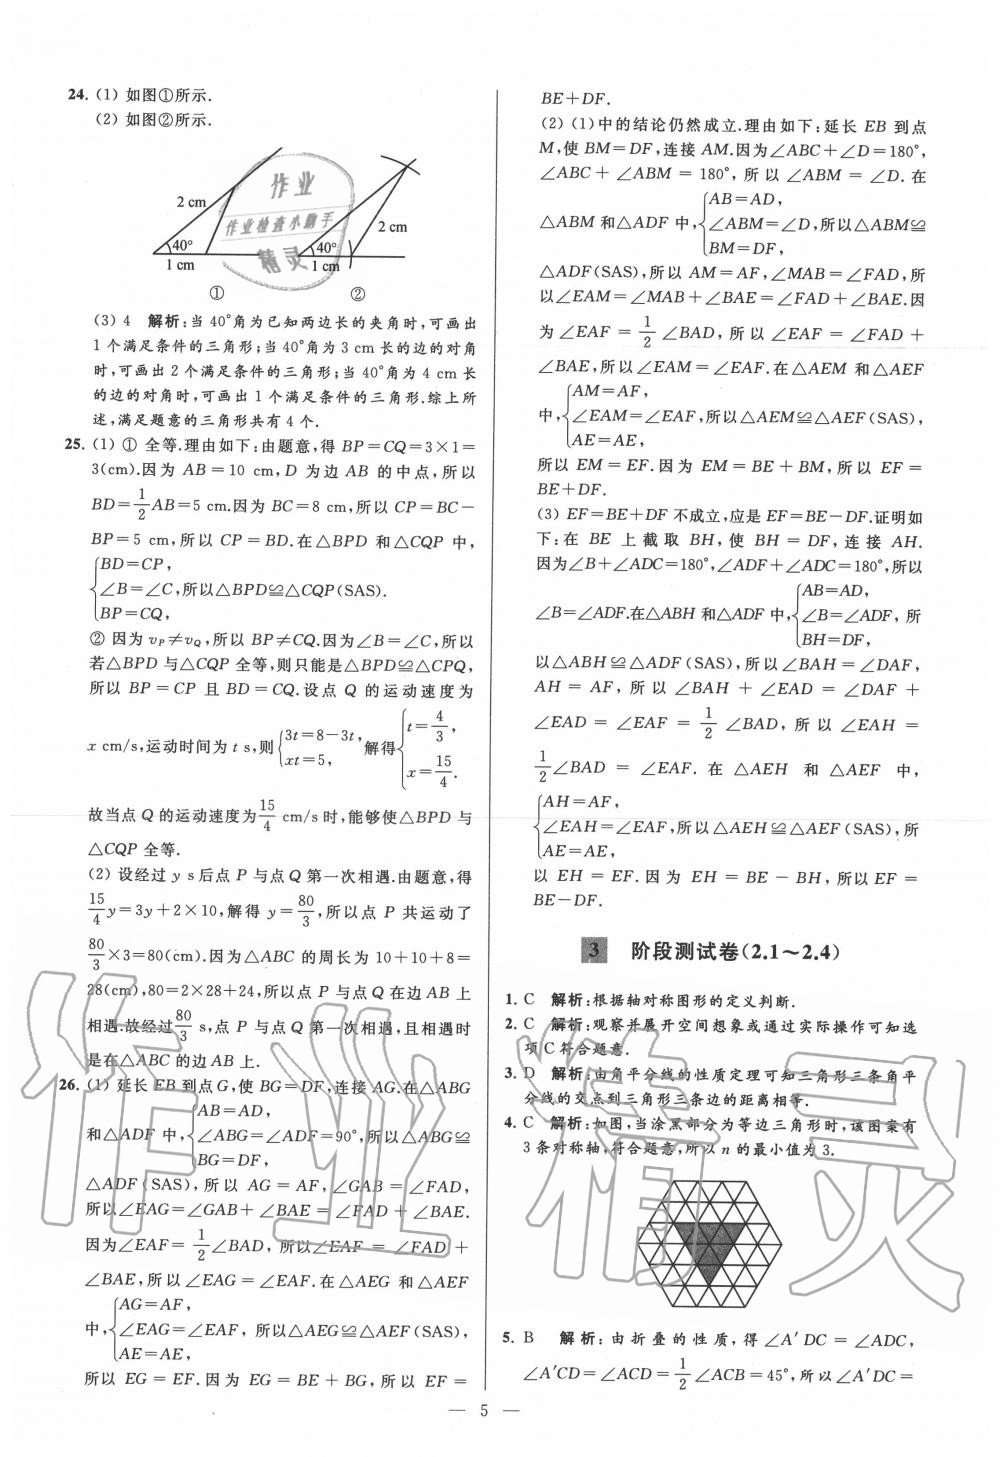 24. (1) 如图①所示.
(2) 如图②所示.
2 cm
40°
1 cm
①
40°
1 cm
2 cm
②
作业
作业检查小助手
精灵
(3) 4 解析:当 40°角为已知两边长的夹角时,可画出
1 个满足条件的三角形;当 40°角为 3 cm 长的边的对角
时,可画出 2 个满足条件的三角形;当 40°角为 4 cm 长
的边的对角时,可画出 1 个满足条件的三角形.综上所
述,满足题意的三角形共有 4 个.
25. (1) ① 全等.理由如下:由题意,得 BP=CQ=3×1=
3(cm).因为 AB=10 cm,D 为边 AB 的中点,所以
BD=1/2AB=5 cm.因为 BC=8 cm,所以 CP=BC−
BP=5 cm,所以 CP=BD.在△BPD 和△CQP 中,
BD=CP,
∠B=∠C,所以△BPD≌△CQP(SAS).
BP=CQ,
② 因为 vP≠vQ,所以 BP≠CQ.因为∠B=∠C,所以
若△BPD 与△CQP 全等,则只能是△BPD≌△CPQ,
所以 BP=CP 且 BD=CQ.设点 Q 的运动速度为
x cm/s,运动时间为 t s,则{3t=8−3t, xt=5, 解得{t=4/3, x=15/4.
故当点 Q 的运动速度为15/4 cm/s时,能够使△BPD 与
△CQP 全等.
(2) 设经过 y s后点 P 与点 Q 第一次相遇.由题意,得
15/4y=3y+2×10,解得 y=80/3,所以点 P 共运动了
80/3×3=80(cm).因为△ABC 的周长为 10+10+8=
28(cm),80=2×28+24,所以点 P 与点 Q 在边 AB 上
相遇.故经过80/3 s,点 P 与点 Q 第一次相遇,且相遇时
是在△ABC 的边 AB 上.
26. (1) 延长 EB 到点 G,使 BG=DF,连接 AG.在△ABG
和△ADF 中,{AB=AD, ∠ABG=∠ADF=90°, BG=DF, 所以△ABG≌
△ADF(SAS),所以 AG=AF,∠GAB=∠FAD,
所以∠EAG=∠GAB+∠BAE=∠FAD+∠BAE.
因为∠EAF=1/2∠BAD,所以∠EAF=∠FAD+
∠BAE,所以∠EAG=∠EAF.在△AEG 和△AEF
中,{AG=AF, ∠EAG=∠EAF, AE=AE, 所以△AEG≌△AEF(SAS),
所以 EG=EF.因为 EG=BE+BG,所以 EF=
BE+DF.
(2) (1)中的结论仍然成立.理由如下:延长 EB 到点
M,使 BM=DF,连接 AM.因为∠ABC+∠D=180°,
∠ABC+∠ABM=180°,所以∠ABM=∠D.在
△ABM 和△ADF 中,{AB=AD, ∠ABM=∠D, BM=DF, 所以△ABM≌
△ADF(SAS),所以 AM=AF,∠MAB=∠FAD,所
以∠EAM=∠MAB+∠BAE=∠FAD+∠BAE.因
为∠EAF=1/2∠BAD,所以∠EAF=∠FAD+
∠BAE,所以∠EAM=∠EAF.在△AEM 和△AEF
中,{AM=AF, ∠EAM=∠EAF, AE=AE, 所以△AEM≌△AEF(SAS),
所以 EM=EF.因为 EM=BE+BM,所以 EF=
BE+DF.
(3) EF=BE+DF 不成立,应是 EF=BE−DF.证明如
下:在 BE 上截取 BH,使 BH=DF,连接 AH.
因为∠B+∠ADC=180°,∠ADF+∠ADC=180°,所以
∠B=∠ADF.在△ABH 和△ADF 中,{AB=AD, ∠B=∠ADF, BH=DF, 所
以△ABH≌△ADF(SAS),所以∠BAH=∠DAF,
AH=AF,所以∠BAH+∠EAD=∠DAF+
∠EAD=∠EAF=1/2∠BAD,所以∠EAH=
1/2∠BAD=∠EAF.在△AEH 和△AEF 中,
AH=AF,
∠EAH=∠EAF,所以△AEH≌△AEF(SAS),所
AE=AE,
以 EH=EF.因为 EH=BE−BH,所以 EF=
BE−DF.
3 阶段测试卷(2.1~2.4)
1. C 解析:根据轴对称图形的定义判断.
2. C 解析:观察并展开空间想象或通过实际操作可知选
项 C 符合题意.
3. D 解析:由角平分线的性质定理可知三角形三条角平
分线的交点到三角形三条边的距离相等.
4. C 解析:如图,当涂黑部分为等边三角形时,该图案有
3 条对称轴,符合题意,所以 n 的最小值为 3.
5. B 解析:由折叠的性质,得∠A′DC=∠ADC,
∠A′CD=∠ACD=1/2∠ACB=45°,所以∠A′DC=
— 5 —
作业精灵